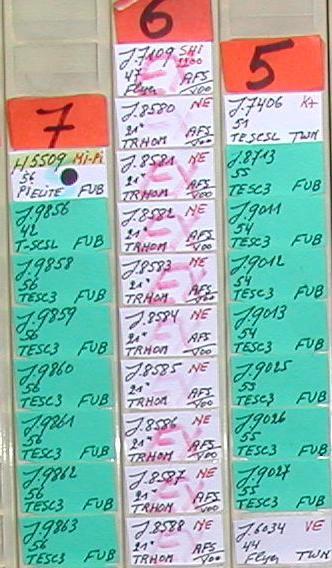 7
H5509 Mi-Pi
56
PIELITE FUB
J.9856
42
T-SCSL FUB
J.9858
56
TESC3 FUB
J.9859
56
TESC3 FUB
J.9860
56
TESC3 FUB
J.9861
56
TESC3 FUB
J.9862
56
TESC3 FUB
J.9863
56
TESC3 FUB
6
J.7109 SHi
1100
47
Flyer AFS
V00
J.8580 NE
21"
TRHOM AFS
V00
J.8581 NE
21"
TRHOM AFS
V00
J.8582 NE
21"
TRHOM AFS
V00
J.8583 NE
21"
TRHOM AFS
V00
J.8584 NE
21"
TRHOM AFS
V00
J.8585 NE
21"
TRHOM AFS
V00
J.8586 NE
21"
TRHOM AFS
V00
J.8587 NE
21"
TRHOM AFS
V00
J.8588 NE
21"
TRHOM AFS
V00
5
J.7406 K+
51
TESCSL TWN
J.8713
55
TESC3 FUB
J.9011
54
TESC3 FUB
J.9012
54
TESC3 FUB
J.9013
54
TESC3 FUB
J.9025
55
TESC3 FUB
J.9026
55
TESC3 FUB
J.9027
55
TESC3 FUB
J.6034 VE
44
Flyer TWN